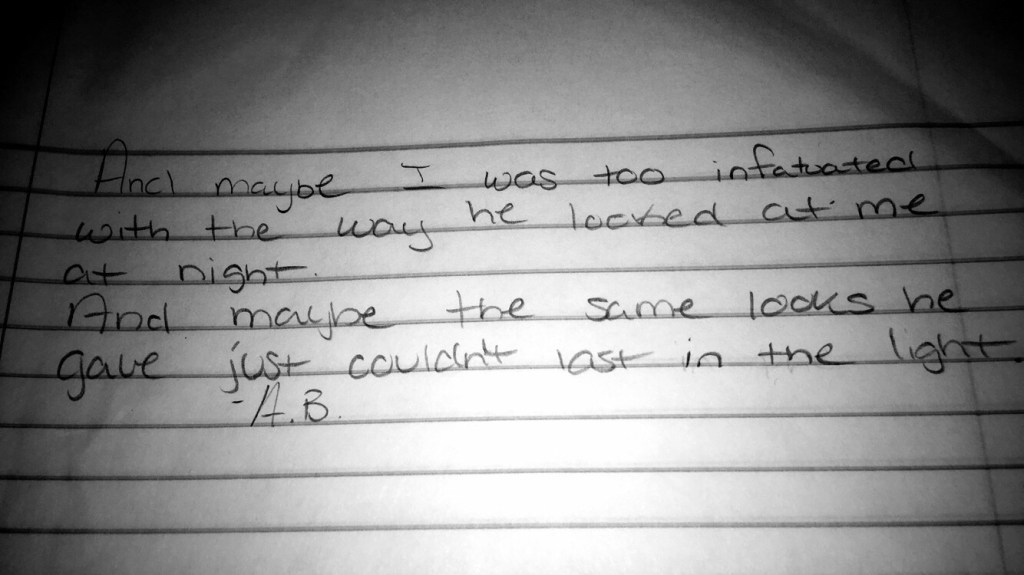 And maybe I was too infatuated
with the way he looked at me
at night.
And maybe the same looks he
gave just couldn't last in the light.
-A.B.